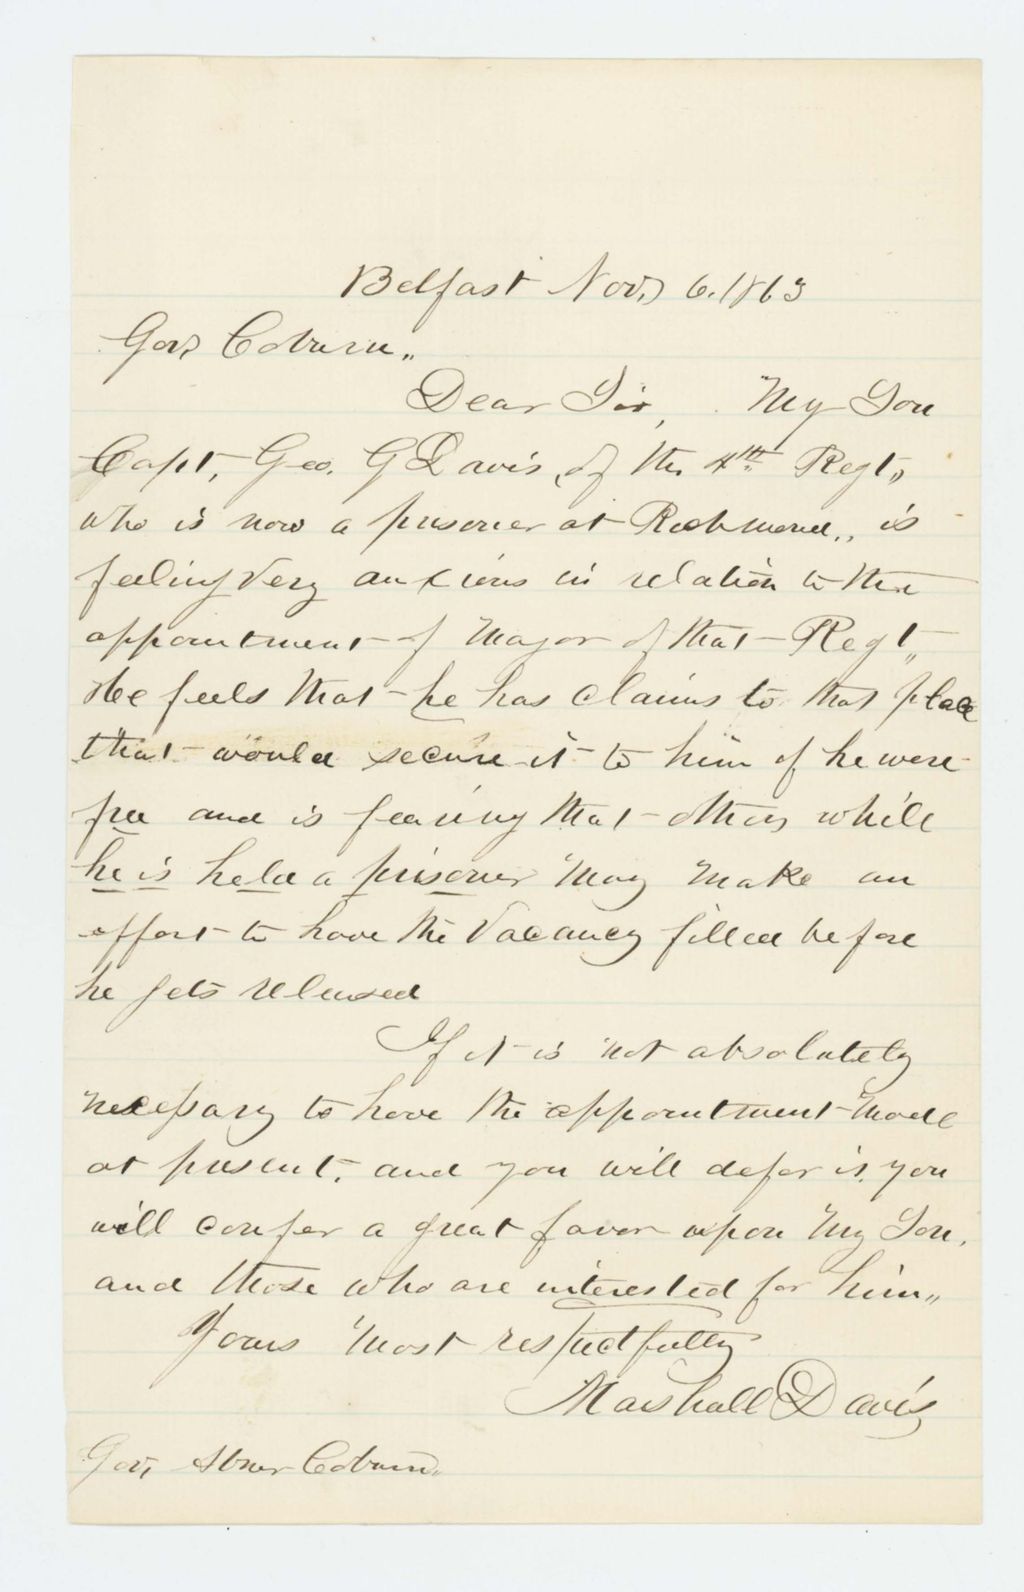 Belfast Nov, 6. 1863
Gov Coburn,,
Dear Sir, My Son
Capt, Geo. G Davis, of the 4th Regt,,
who is now a prisoner at Richmond,, is
feeling very anxious in relation to the
appointment of Major of that Regt,,
He feels that he has claims to that place
that would secure it to him if he were
free and is fearing that others while
he is held a prisoner may make an
effort to have the vacancy filled before
he gets released
If it is not absolutely
necessary to have the appointment made
at present, and you will defer is, you
will confer a great favor upon my Son,
and those who are interested for him,,
Yours most respectfully
Marshall Davis
Gov, Abner Coburn,,